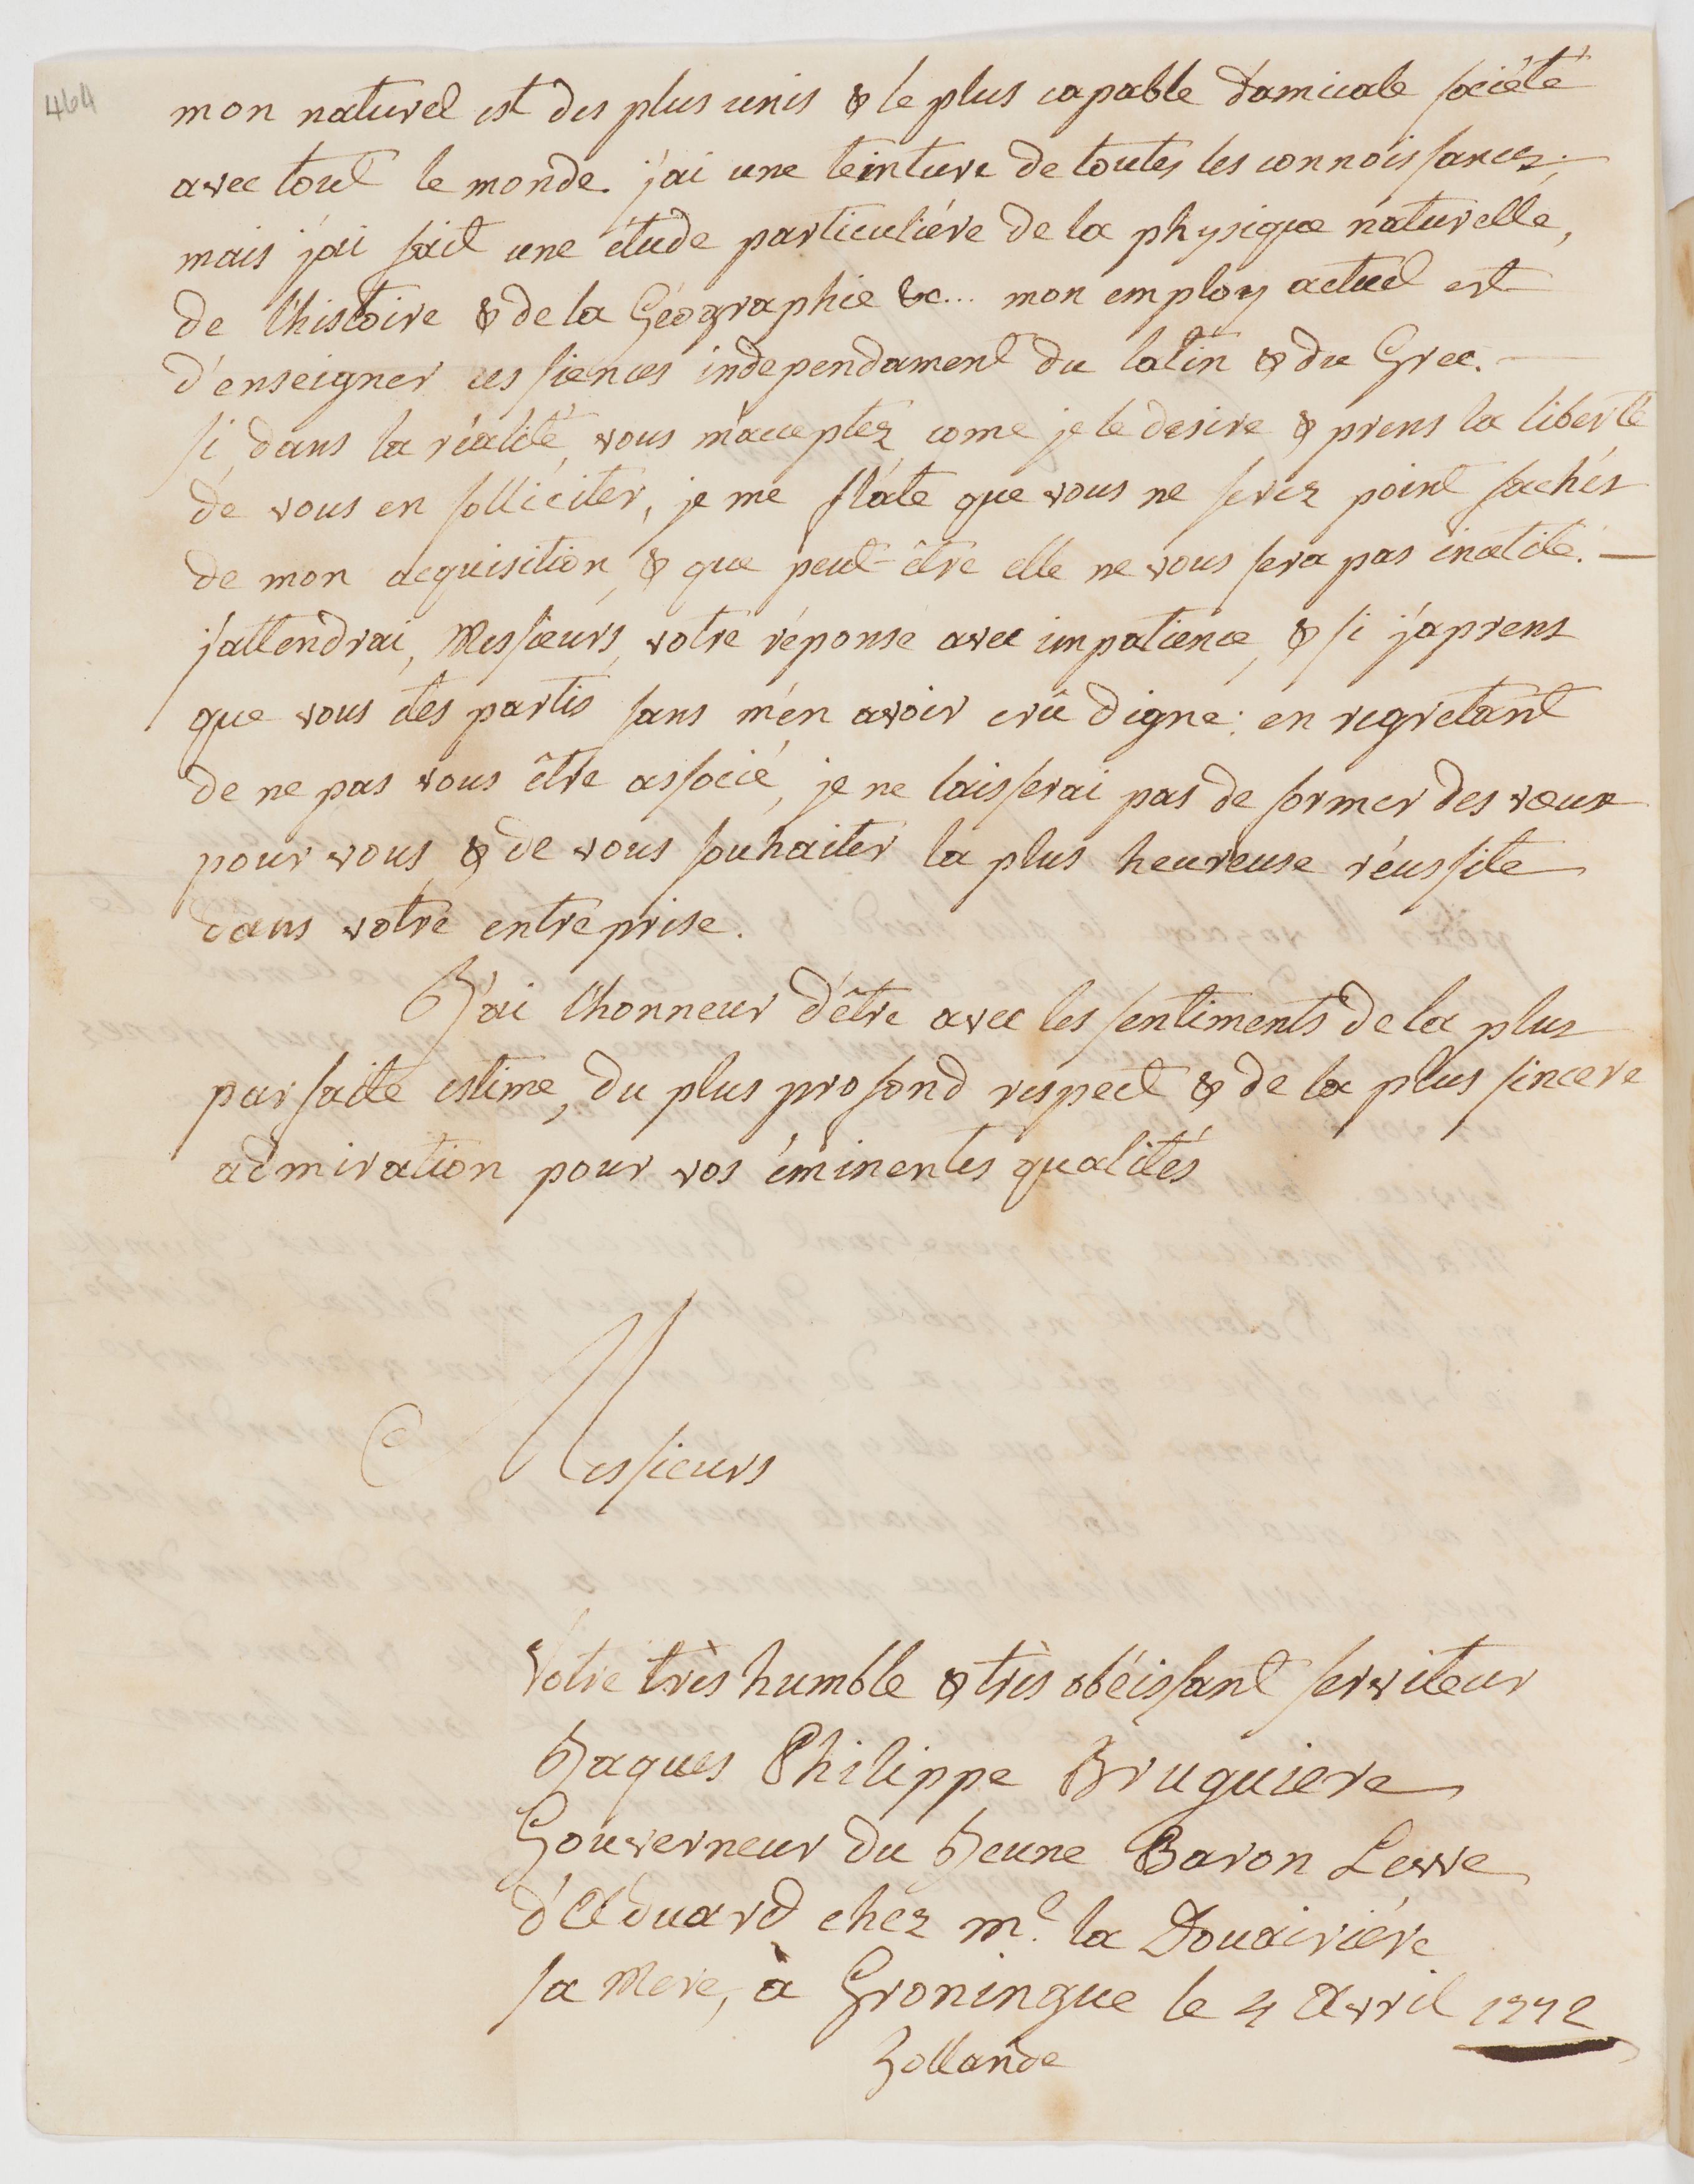 464
mon naturel est des plus unis & le plus capable d'amicale société
avec tout le monde. j'ai une teinture de toutes les connoissances;
mais j'ai fait une étude particuliére de la physique naturelle,
de l'histoire & de la Géographie &c... mon employ actuel est
d'enseigner ces siences independament du latin & du Grec. —
si, dans la réalité, vous m'acceptez, come je le desire & prens la liberté
de vous en solliciter, je me flate que vous ne serez point fachés
de mon acquisition, & que peut-être elle ne vous sera pas inutile. —
j'attendrai, Messieurs, votre réponse avec impatience, & si j'aprens
que vous étes partis sans m'en avoir crû digne: en regretant
de ne pas vous être associé, je ne laisserai pas de former des vœux
pour vous, & de vous souhaiter la plus heureuse réussite
dans votre entreprise.
J'ai l'honneur d'être avec les sentiments de la plus
parfaite estime, du plus profond respect & de la plus sincere
admiration pour vos éminentes qualités
Messieurs
Votre très humble & très obéissant serviteur
Jaques Philippe Bruguiere
Gouverneur du Jeune Baron Lewe
d'Aduard chez me. la Douairiére
sa Mere, à Groningue le 4 Avril 1772
Hollande